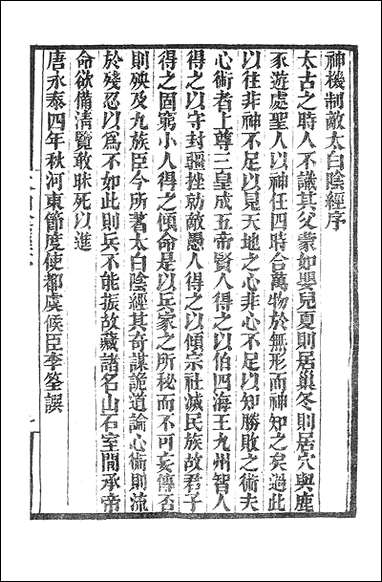 神機制敵太白陰經序
太古之時人不識其父蒙如嬰兒夏則居巢冬則居穴與鹿
豕遊處聖人以神任四時合萬物於無形而神知之矣過此
以往非神不足以見天地之心非心不足以知勝敗之術夫
心術者上尊三皇成五帝賢人得之以伯四海王九州智人
得之以守封疆挫勍敵愚人得之以傾宗社滅民族故君子
得之固窮小人得之傾命是以兵家之所秘而不可妄傳否
則殃及九族臣今所著太白陰經其奇謀詭道論心術則流
於殘忍以為不如此則兵不能振故藏諸名山石室間承帝
命欲備清覽敢昧死以進
唐永泰四年秋河東節度使都虞候臣李筌譔